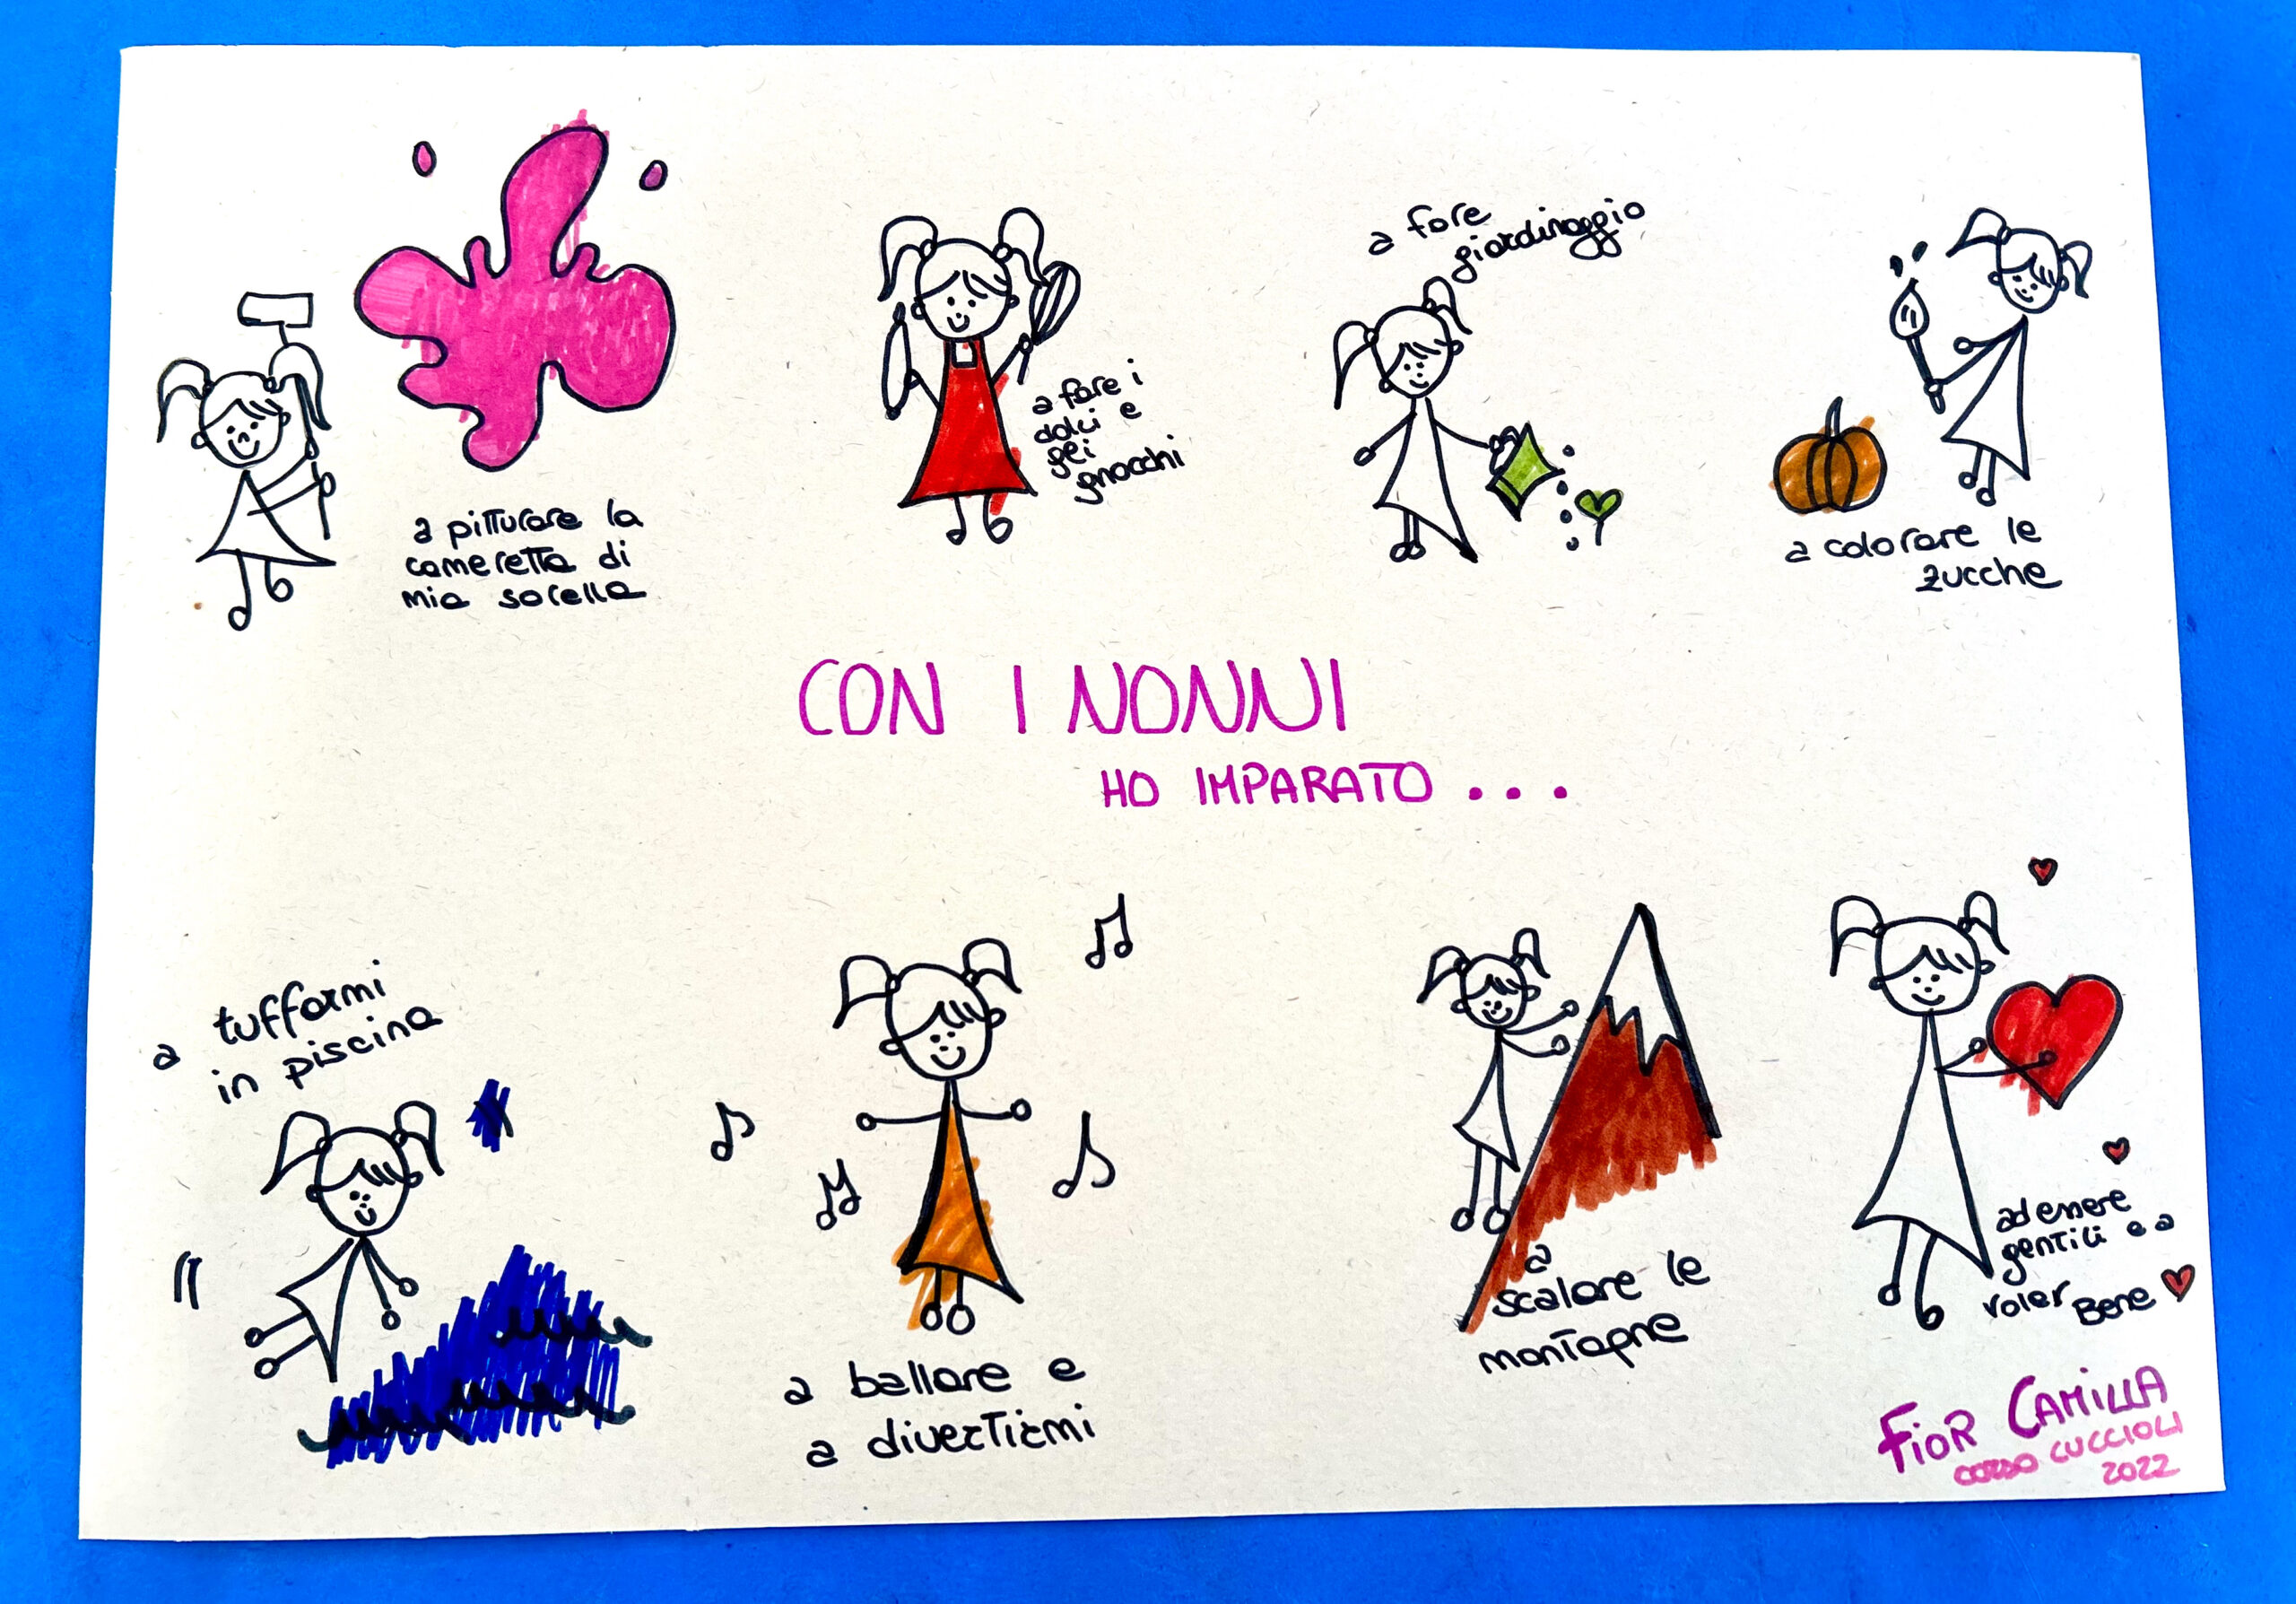 a pitturare la
cameretta di
mia sorella
a fare i
dolci e
gli
gnocchi
a fare
giardinaggio
a colorare le
zucche
CON I NONNI
HO IMPARATO...
a tuffarmi
in piscina
a ballare e
a divertirmi
a
scalare le
montagne
ad essere
gentili e a
voler Bene
FIOR CAMILLA
CORSO CUCCIOLI
2022